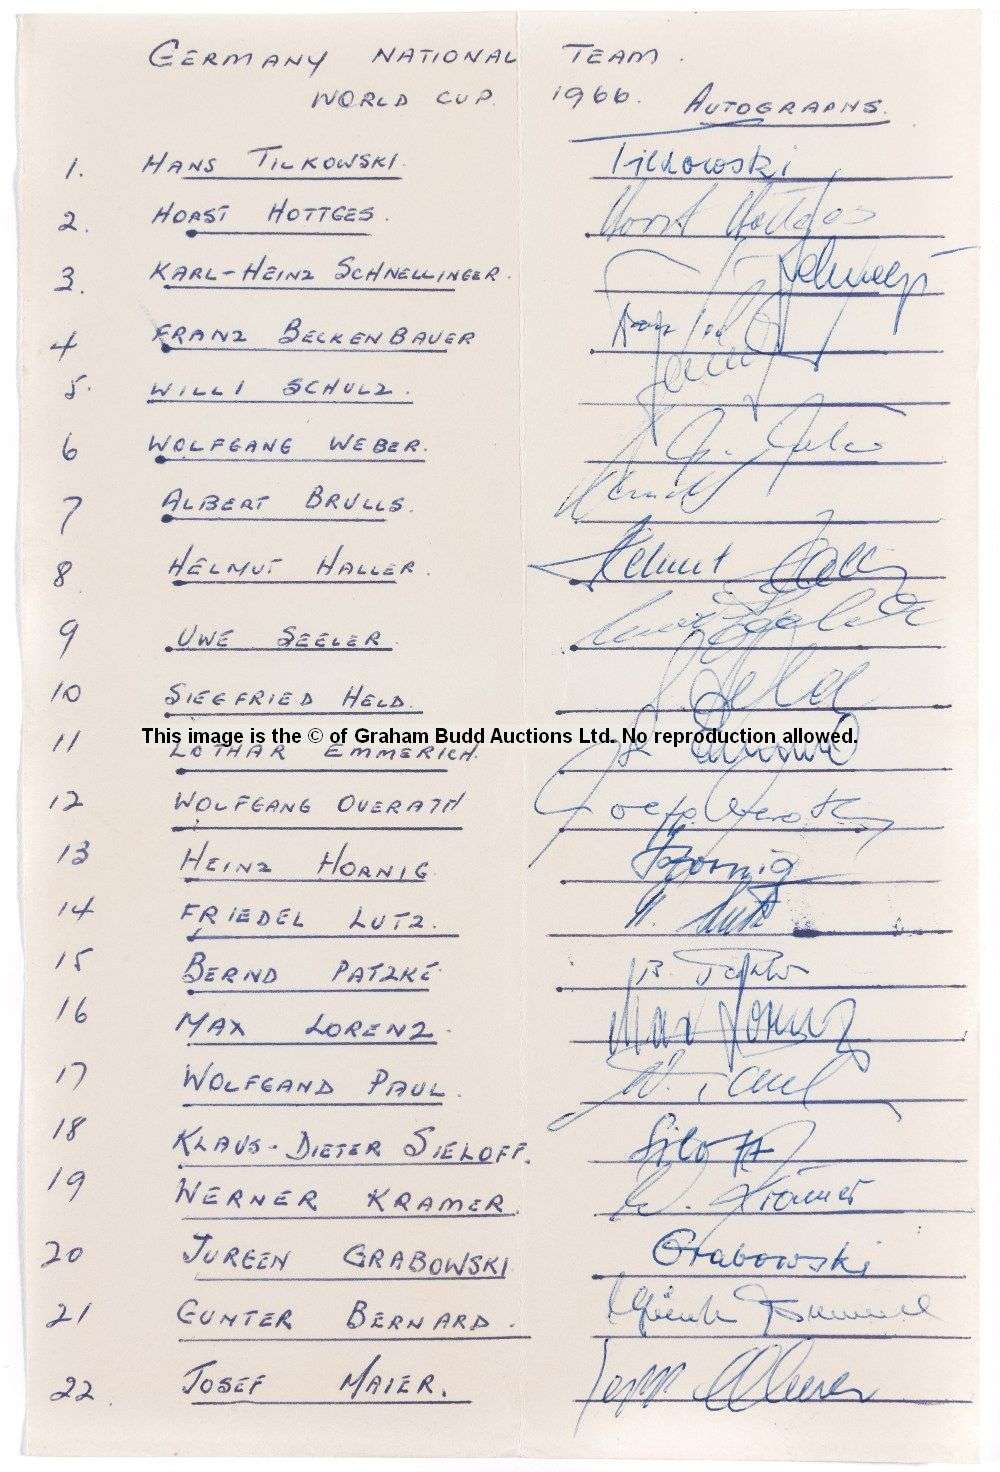 GERMANY NATIONAL TEAM.
WORLD CUP. 1966. AUTOGRAPHS.
1. HANS TILKOWSKI. Tilkowski
2. HORST HOTTGES. Horst Höttges
3. KARL-HEINZ SCHNELLINGER.
4 FRANZ BECKENBAUER
5. WILLI SCHULZ.
6 WOLFGANG WEBER.
7 ALBERT BRULLS.
8 HELMUT HALLER. Helmut Haller
9 UWE SEELER.
10 SIEGFRIED HELD. S. Held
This image is the © of Graham Budd Auctions Ltd. No reproduction allowed.
11 LOTHAR EMMERICH.
12 WOLFGANG OVERATH
13 HEINZ HORNIG. Hornig
14 FRIEDEL LUTZ. Lutz
15 BERND PATZKÉ
16 MAX LORENZ. Max Lorenz
17 WOLFGAND PAUL. W. Paul
18 KLAUS-DIETER SIELOFF. Siloff
19 WERNER KRAMER. W. Krämer
20 JURGEN GRABOWSKI Grabowski
21 GUNTER BERNARD.
22. JOSEF MAIER. Sepp Maier